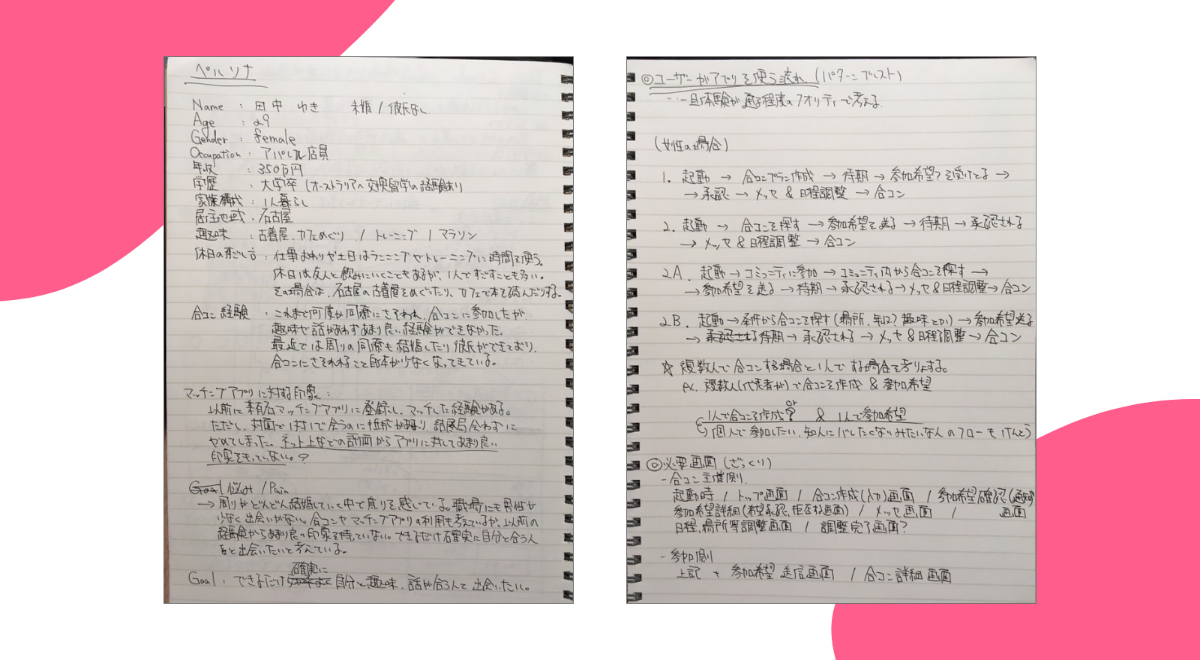 ペルソナ
Name : 田中 ゆき 未婚 / 彼氏なし
Age : 29
Gender : female
Occupation : アパレル店員
年収 : 350万円
学歴 : 大学卒 (オーストラリアへ交換留学の経験あり
家族構成 : 1人暮らし
居住地域 : 名古屋
趣味 : 古着屋、カフェめぐり / トレーニング / マラソン
休日の過ごし方 : 仕事おわりや土日はランニングやトレーニングに時間を使う。
休日は友人と飲みにいくこともあるが、1人ですごすことも多い。
その場合は、名古屋の古着屋をめぐったり、カフェで本を読んだりする。
合コン経験 : これまで何度か同僚にさそわれ、合コンに参加したが、
趣味や話があわずあまり良い経験ができなかった。
最近では周りの同僚も結婚したり彼氏ができており、
合コンにさそわれること自体が少なくなってきている。
マッチングアプリに対する印象 :
以前に有名マッチングアプリに登録し、マッチした経験がある。
ただし、対面で1対1で会うのに抵抗が残り、結局会わずに
やめてしまった。ネット上などの評価からアプリに対してあまり良い
印象をもっていない。?
悩み / Pain
→ 周りがどんどん結婚していく中で焦りを感じている。職場にも男性が
少なく出会いがない。合コンやマッチングアプリの利用も考えているが、以前の
経験からあまり良い印象を持っていない。できるだけ確実に自分と合う人
と出会いたいと考えている。
確実に
Goal : できるだけ 自分と趣味、話が合う人と出会いたい。
◎ユーザーがアプリを使う流れ (パターンブレスト)
… 一旦体験が通る程度のクオリティで考える。
(女性の場合)
1. 起動 → 合コンプラン作成 → 待期 → 参加希望を受けとる →
→ 承認 → メッセ & 日程調整 → 合コン
2. 起動 → 合コンを探す → 参加希望を送る → 待期 → 承認される
→ メッセ & 日程調整 → 合コン
2A. 起動 → コミュニティに参加 → コミュニティ内から合コンを探す →
→ 参加希望を送る → 待期 → 承認される → メッセ & 日程調整 → 合コン
2B. 起動 → 条件から合コンを探す (場所、年は? 趣味とか) → 参加希望送る
→ 承認される 待期 → 承認される → メッセ & 日程調整 → 合コン
☆ 複数人で合コンする場合と1人でする場合で考慮する。
ex. 複数人(代表者が)で合コンを作成 & 参加希望
or
1人で合コンを作成? & 1人で参加希望
個人で参加したい、知人にバレたくないみたいな人のフローもけんとう
◎必要画面 (ざっくり)
- 合コン主催側
起動時 / トップ画面 / 合コン作成(入力)画面 / 参加希望確認(通知)
参加希望詳細(希望承認、拒否ね画面) / メッセ画面 / 画面
日程、場所等調整画面 / 調整完了画面?
- 参加側
上記 + 参加希望 送信画面 / 合コン詳細画面